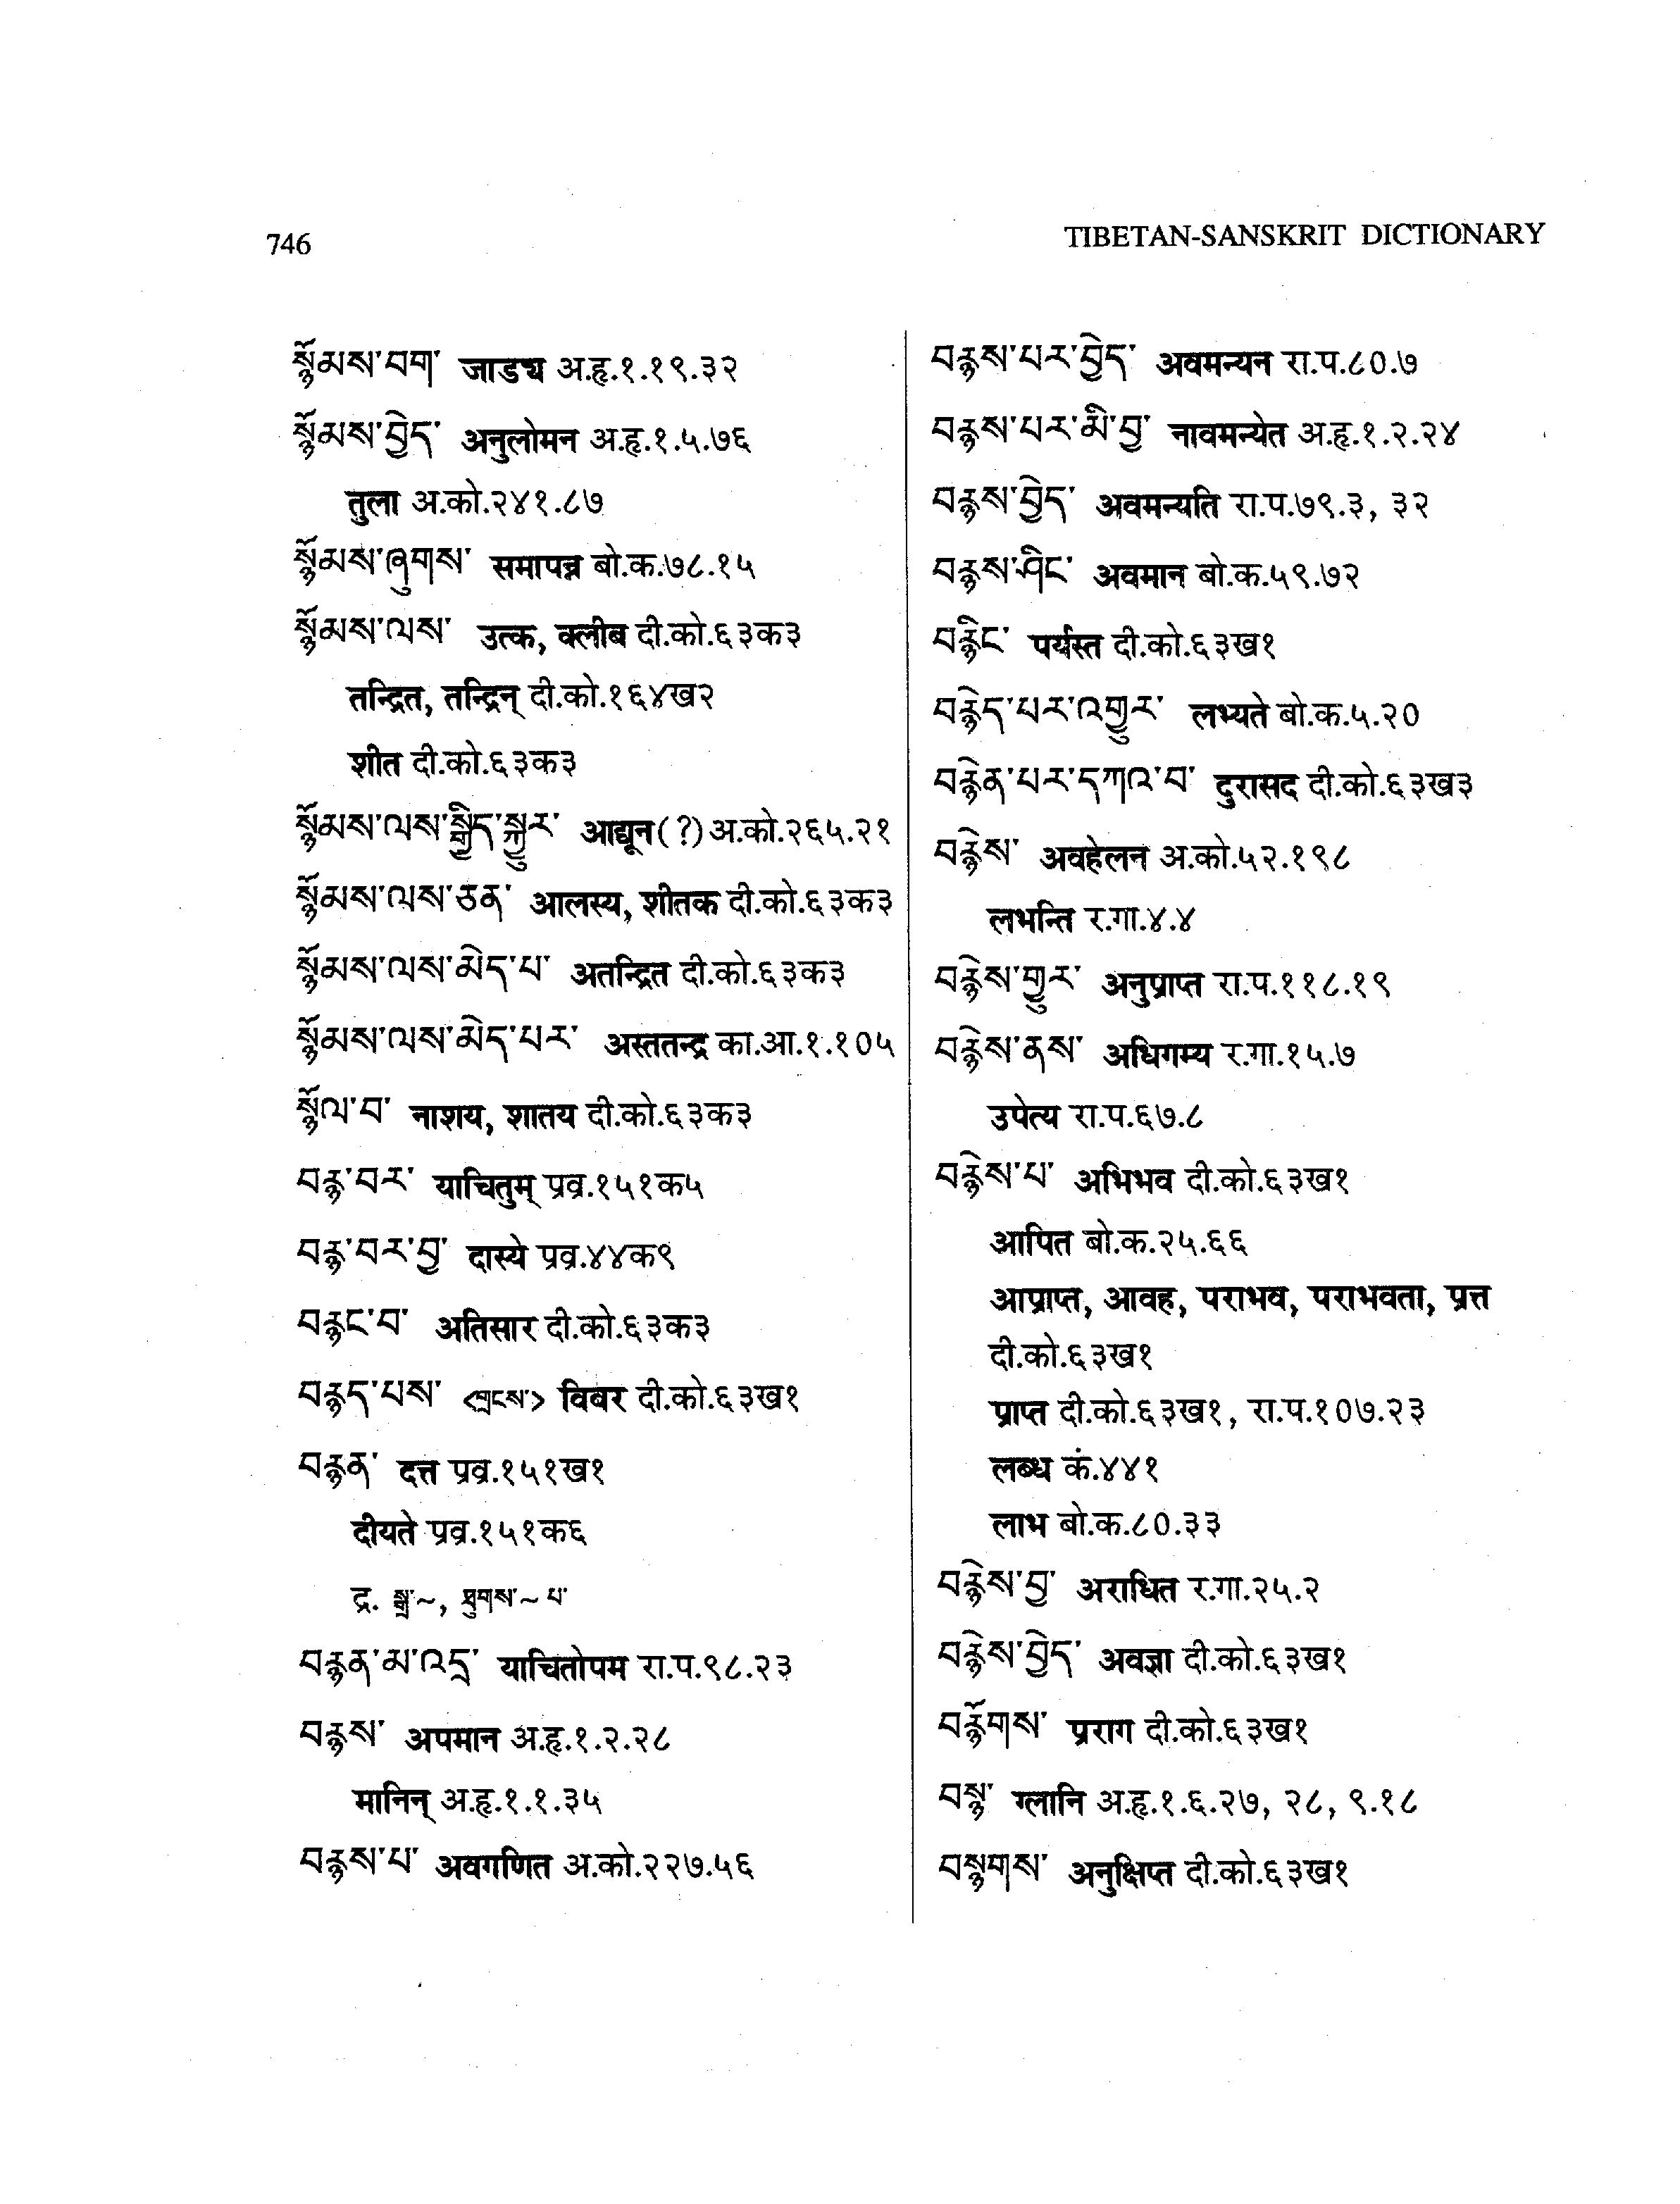 746
TIBETAN-SANSKRIT DICTIONARY
སྙོམས་བག་ जाड्य अ.हृ.१.१९.३२
སྙོམས་བྱེད་ अनुलोमन अ.हृ.१.५.७६
तुला अ.को.२४१.८७
སྙོམས་ཞུགས་ समापन्न बो.क.७८.१५
སྙོམས་ལས་ उत्क, क्लीब दी.को.६३क३
तन्द्रित, तन्द्रिन् दी.को.१६४ख२
शीत दी.को.६३क३
སྙོམས་ལས་སྒྱིད་སྐྱུར་ आद्यून(?) अ.को.२६५.२१
སྙོམས་ལས་ཅན་ आलस्य, शीतक दी.को.६३क३
སྙོམས་ལས་མེད་པ་ अतन्द्रित दी.को.६३क३
སྙོམས་ལས་མེད་པར་ अस्ततन्द्र का.आ.१.१०५
སྙོལ་བ་ नाशय, शातय दी.को.६३क३
བརྙ་བར་ याचितुम् प्रव्र.१५१क५
བརྙ་བར་བྱ་ दास्ये प्रव्र.४४क९
བརྙང་བ་ अतिसार दी.को.६३क३
བརྙད་པས་ <ཁྲངས་> विबर दी.को.६३ख१
བརྙན་ दत्त प्रव्र.१५१ख१
दीयते प्रव्र.१५१क६
द्र. སྒྲ་~, ཐུགས་~པ་
བརྙན་མ་འདྲ་ याचितोपम रा.प.९८.२३
བརྙས་ अपमान अ.हृ.१.२.२८
मानिन् अ.हृ.१.१.३५
བརྙས་པ་ अवगणित अ.को.२२७.५६
བརྙས་པར་བྱེད་ अवमन्यन रा.प.८०.७
བརྙས་པར་མི་བྱ་ नावमन्येत अ.हृ.१.२.२४
བརྙས་བྱེད་ अवमन्यति रा.प.७९.३, ३२
བརྙས་ཤིང་ अवमान बो.क.५९.७२
བརྙིང་ पर्यस्त दी.को.६३ख१
བརྙེད་པར་འགྱུར་ लभ्यते बो.क.५.२०
བརྙེན་པར་དཀའ་བ་ दुरासद दी.को.६३ख३
བརྙེས་ अवहेलन अ.को.५२.१९८
लभन्ति र.गा.४.४
བརྙེས་གྱུར་ अनुप्राप्त रा.प.११८.१९
བརྙེས་ནས་ अधिगम्य र.गा.१५.७
उपेत्य रा.प.६७.८
བརྙེས་པ་ अभिभव दी.को.६३ख१
आपित बो.क.२५.६६
आप्राप्त, आवह, पराभव, पराभवता, प्रत्त
दी.को.६३ख१
प्राप्त दी.को.६३ख१, रा.प.१०७.२३
लब्ध कं.४४१
लाभ बो.क.८०.३३
བརྙེས་བྱ་ अराधित र.गा.२५.२
བརྙེས་བྱེད་ अवज्ञा दी.को.६३ख१
བརྙོགས་ प्रराग दी.को.६३ख१
བསྙ་ ग्लानि अ.हृ.१.६.२७, २८, ९.१८
བསྙགས་ अनुक्षिप्त दी.को.६३ख१